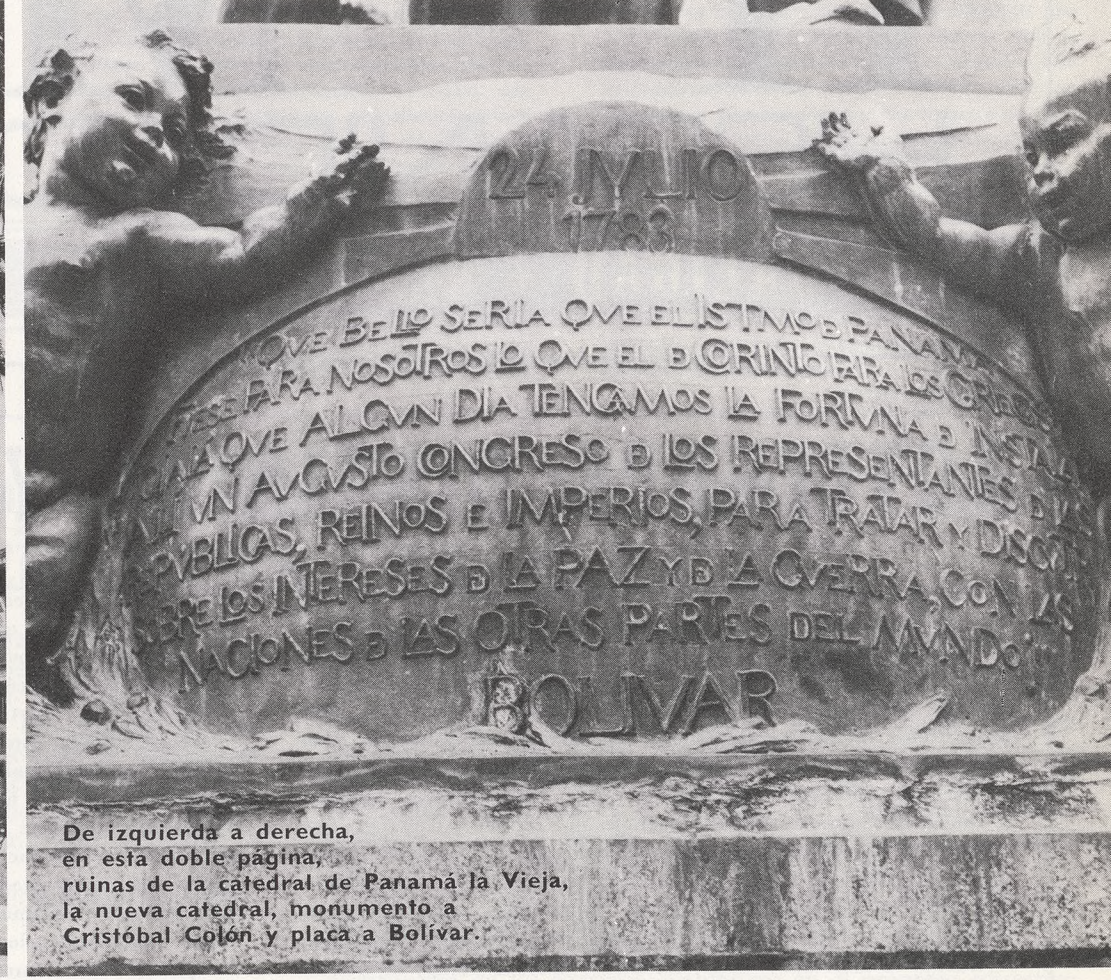 24 JVLIO
1783
"QVE BELLO SERIA QVE EL ISTMO DE PANAMA
FVESE PARA NOSOTROS LO QVE EL DE CORINTO PARA LOS GRIEGOS
OJALA QVE ALGVN DIA TENGAMOS LA FORTVNA DE INSTALAR
ALLI VN AVGVSTO CONGRESO DE LOS REPRESENTANTES DE LAS
REPVBLICAS, REINOS E IMPERIOS, PARA TRATAR Y DISCVTIR
SOBRE LOS INTERESES DE LA PAZ Y DE LA GVERRA, CON LAS
NACIONES DE LAS OTRAS PARTES DEL MVNDO"
BOLIVAR
De izquierda a derecha,
en esta doble página,
ruinas de la catedral de Panamá la Vieja,
la nueva catedral, monumento a
Cristóbal Colón y placa a Bolívar.